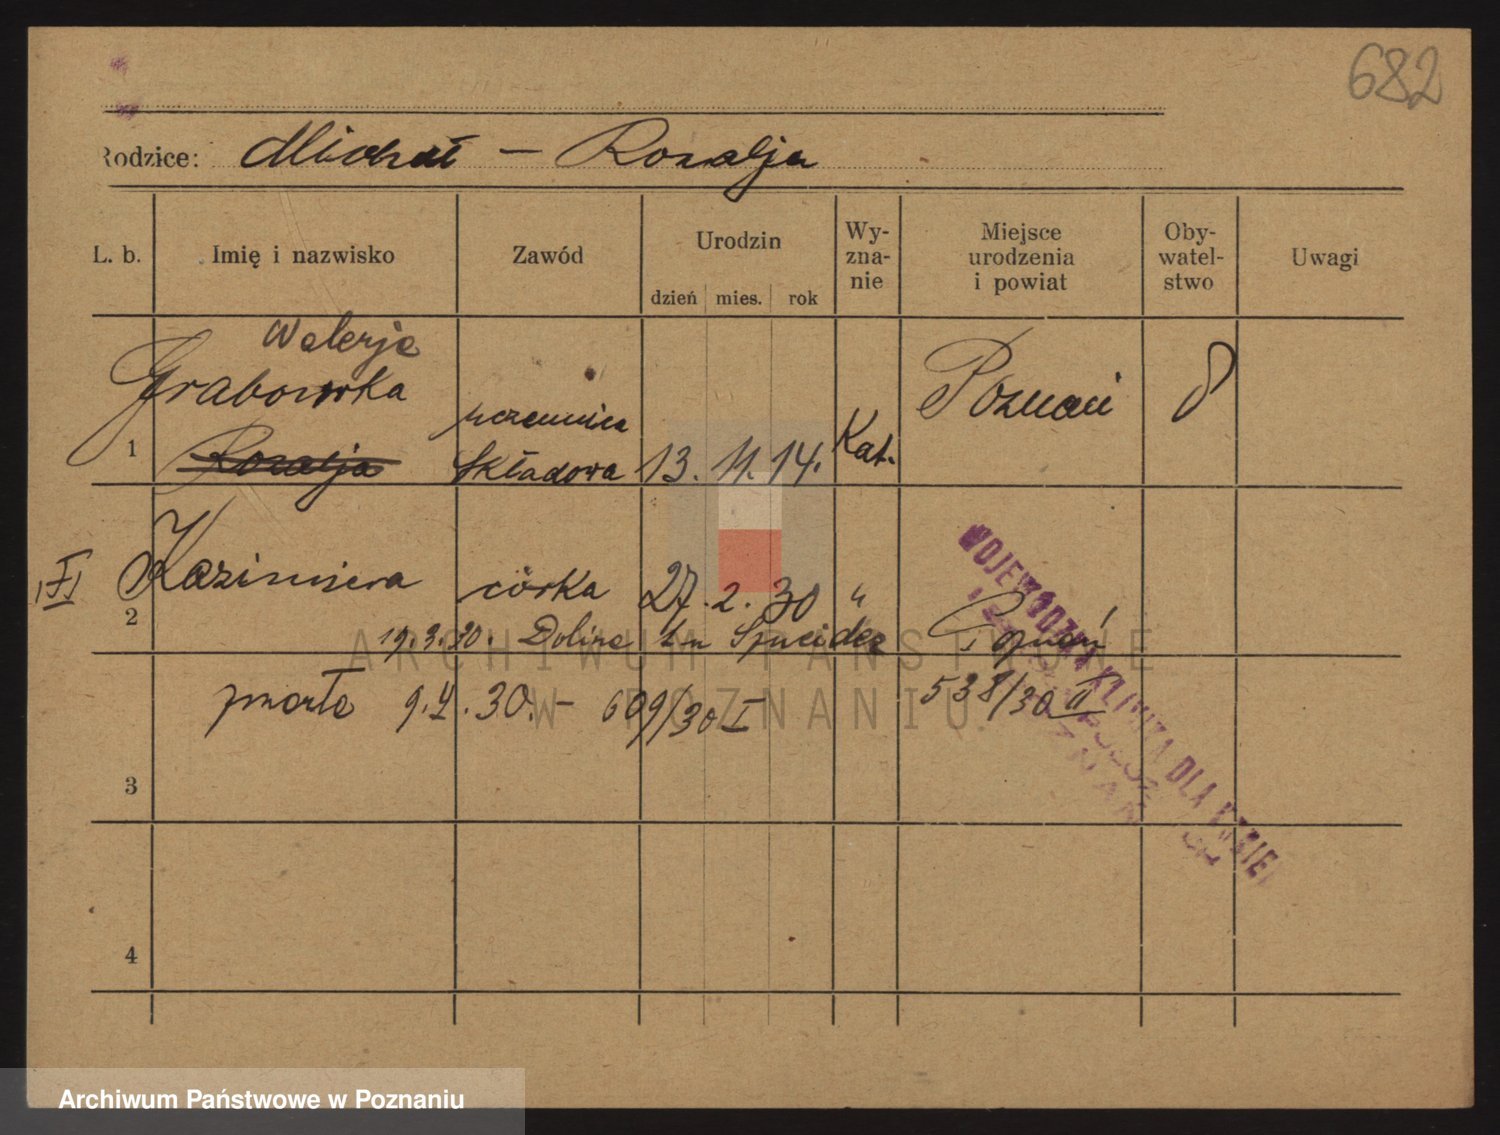 682
Rodzice: Michał — Rozalja
L. b. Imię i nazwisko Zawód Urodzin Wy-zna-nie Miejsce urodzenia i powiat Oby-watel-stwo Uwagi
dzień mies. rok
Walerja
Grabowska Poznań
uczennica
1 Rozalja składowa 13. 11. 14. Kat.
2 Kazimiera córka 27. 2. 30 "
19.3.30. Dolina Poznań
zmarła 9.4.30. — 609/30 I 538/30 II
3
4
WOJEWÓDZKA KLINIKA DLA
ARCHIWUM PAŃSTWOWE
W POZNANIU
Archiwum Państwowe w Poznaniu